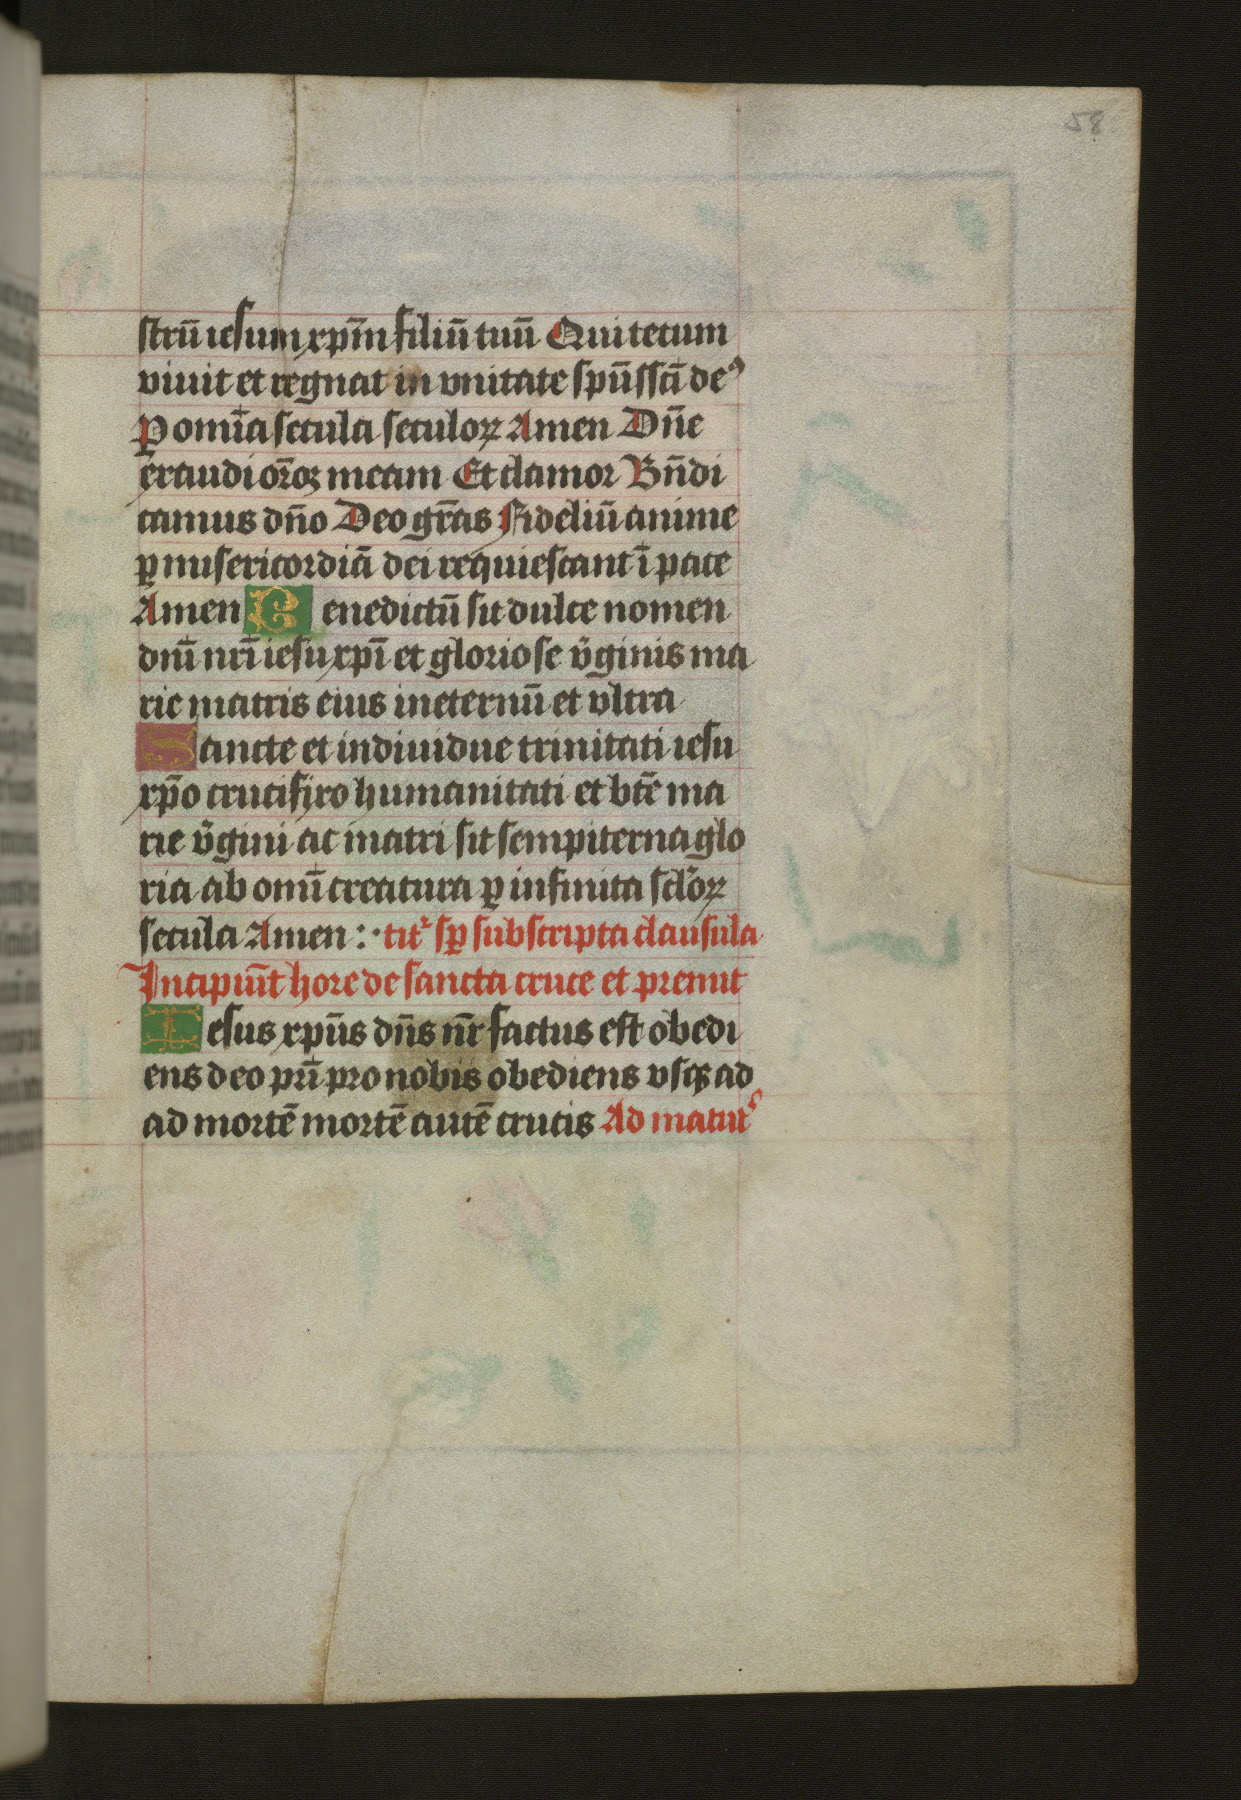 58
strū iesum xp̄m filiū tuū Qui tecum
viuit et regnat in vnitate sp̄u sscī deꝰ
P om̄ia secula seculoꝝ Amen Dn̄e
exaudi or̄oꝫ meam Et clamor Bn̄di
camus dn̄o Deo gr̄as Fideliū anime
ꝑ misericordiā dei requiescant ī pace
Amen Benedictū sit dulce nomen
dn̄i nr̄i iesu xp̄i et gloriose v̄ginis ma
rie matris eius ineternū et vltra
Sancte et indiuidue trinitati iesu
xp̄o crucifixo humanitati et btē ma
rie v̄gini ac matri sit sempiterna glo
ria ab omī creatura ꝑ infinita scl̄oꝝ
secula Amen :· sꝑ subscripta clausula
Incipiūt hore de sancta cruce et premit
Iesus xp̄us dn̄s nr̄ factus est obedi
ens deo pr̄i pro nobis obediens vsqꝫ ad
ad mortē mortē autē crucis Ad matut᾽